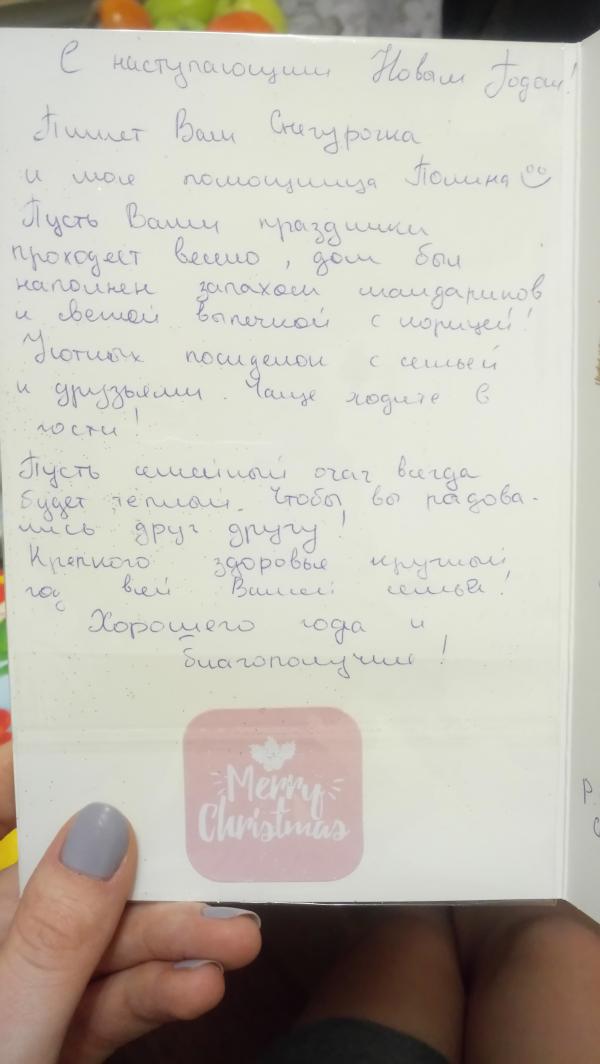 С наступающим Новым Годом!
Пишет Вам Снегурочка
и моя помощница Полина
Пусть Ваши праздники
проходят весело, дом был
наполнен запахом мандаринов
и свежей выпечкой с корицей!
Уютных посиделок с семьей
и друзьями. Чаще ходите в
гости!
Пусть семейный очаг всегда
будет тёплый. Чтобы вы радова-
лись друг другу!
Крепкого здоровья круглый
год всей Вашей семье!
Хорошего года и
благополучия!
Merry
Christmas